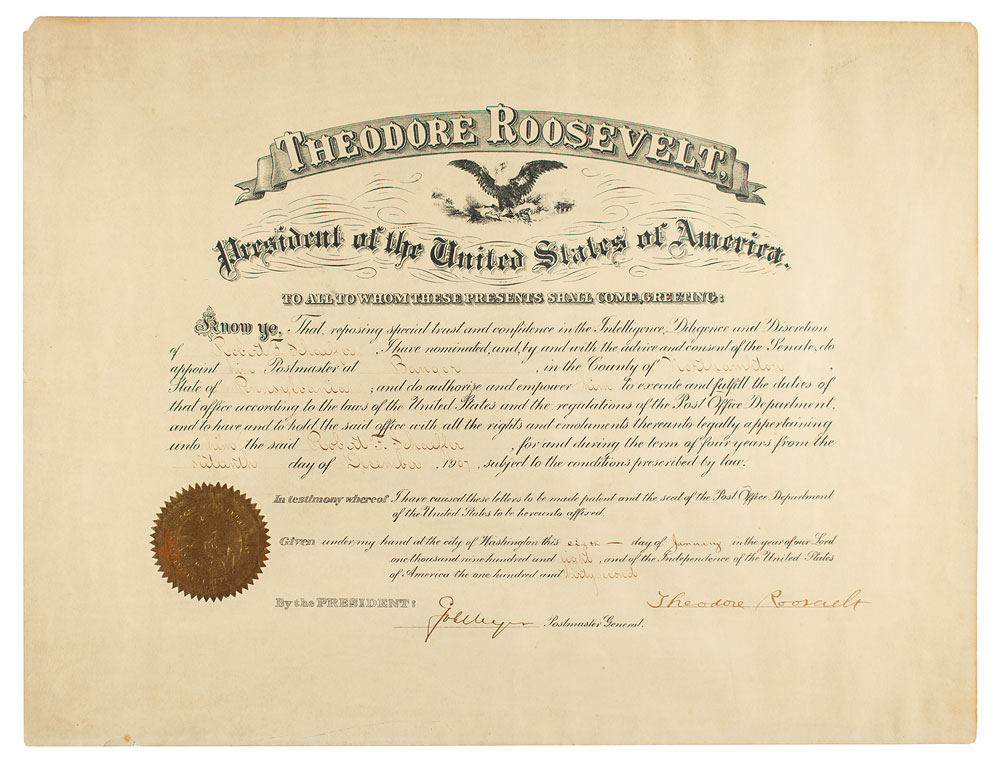 THEODORE ROOSEVELT,
President of the United States of America.
TO ALL TO WHOM THESE PRESENTS SHALL COME, GREETING:
Know ye, That, reposing special trust and confidence in the Intelligence, Diligence and Discretion
of Robert F. , I have nominated, and, by and with the advice and consent of the Senate, do
appoint him Postmaster at Bangor , in the County of Northampton ,
State of Pennsylvania ; and do authorize and empower him to execute and fulfill the duties of
that office according to the laws of the United States and the regulations of the Post Office Department,
and to have and to hold the said office with all the rights and emoluments thereunto legally appertaining
unto him the said Robert F. , for and during the term of four years from the
sixteenth day of December , 1907 , subject to the conditions prescribed by law.
In testimony whereof I have caused these letters to be made patent and the seal of the Post Office Department
of the United States to be hereunto affixed.
Given under my hand at the city of Washington this eighth day of January in the year of our Lord
one thousand nine hundred and eight , and of the Independence of the United States
of America the one hundred and thirty second
By the PRESIDENT:
Theodore Roosevelt
Postmaster General.